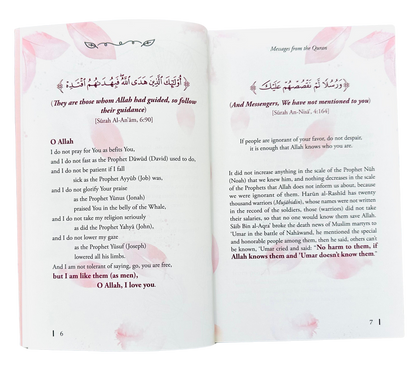 ﴿ أُوْلَٰٓئِكَ ٱلَّذِينَ هَدَى ٱللَّهُ فَبِهُدَىٰهُمُ ٱقْتَدِهْ ﴾
(They are those whom Allah had guided, so follow
their guidance)
[Sūrah Al-An'ām, 6:90]
O Allah
I do not pray for You as befits You,
and I do not fast as the Prophet Dāwūd (David) used to do,
and I do not be patient if I fall
sick as the Prophet Ayyūb (Job) was,
and I do not glorify Your praise
as the Prophet Yūnus (Jonah)
praised You in the belly of the Whale,
and I do not take my religion seriously
as did the Prophet Yahyā (John),
and I do not lower my gaze
as the Prophet Yūsuf (Joseph)
lowered all his limbs.
And I am not tolerant of saying, go, you are free,
but I am like them (as men),
O Allah, I love you.
6
Messages from the Quran
﴿ وَرُسُلًا لَّمْ نَقْصُصْهُمْ عَلَيْكَ ﴾
(And Messengers, We have not mentioned to you)
[Sūrah An-Nisā', 4:164]
If people are ignorant of your favor, do not despair.
it is enough that Allah knows who you are.
It did not increase anything in the scale of the Prophet Nūh
(Noah) that we knew him, and nothing decreases in the scale
of the Prophets that Allah does not inform us about, because
we were ignorant of them. Harūn al-Rashīd had twenty
thousand warriors (Mujāhidīn), whose names were not written
in the record of the soldiers, those (names) did not take
their salaries, so that no one would know them save Allah.
Sāib Bin al-Aqra' broke the death news of Muslim martyrs to
'Umar in the battle of Nahāwand, he mentioned the special
and honorable people among them, then he said, others can't
be known, 'Umar cried and said: "No harm to them, if
Allah knows them and 'Umar doesn't know them."
7